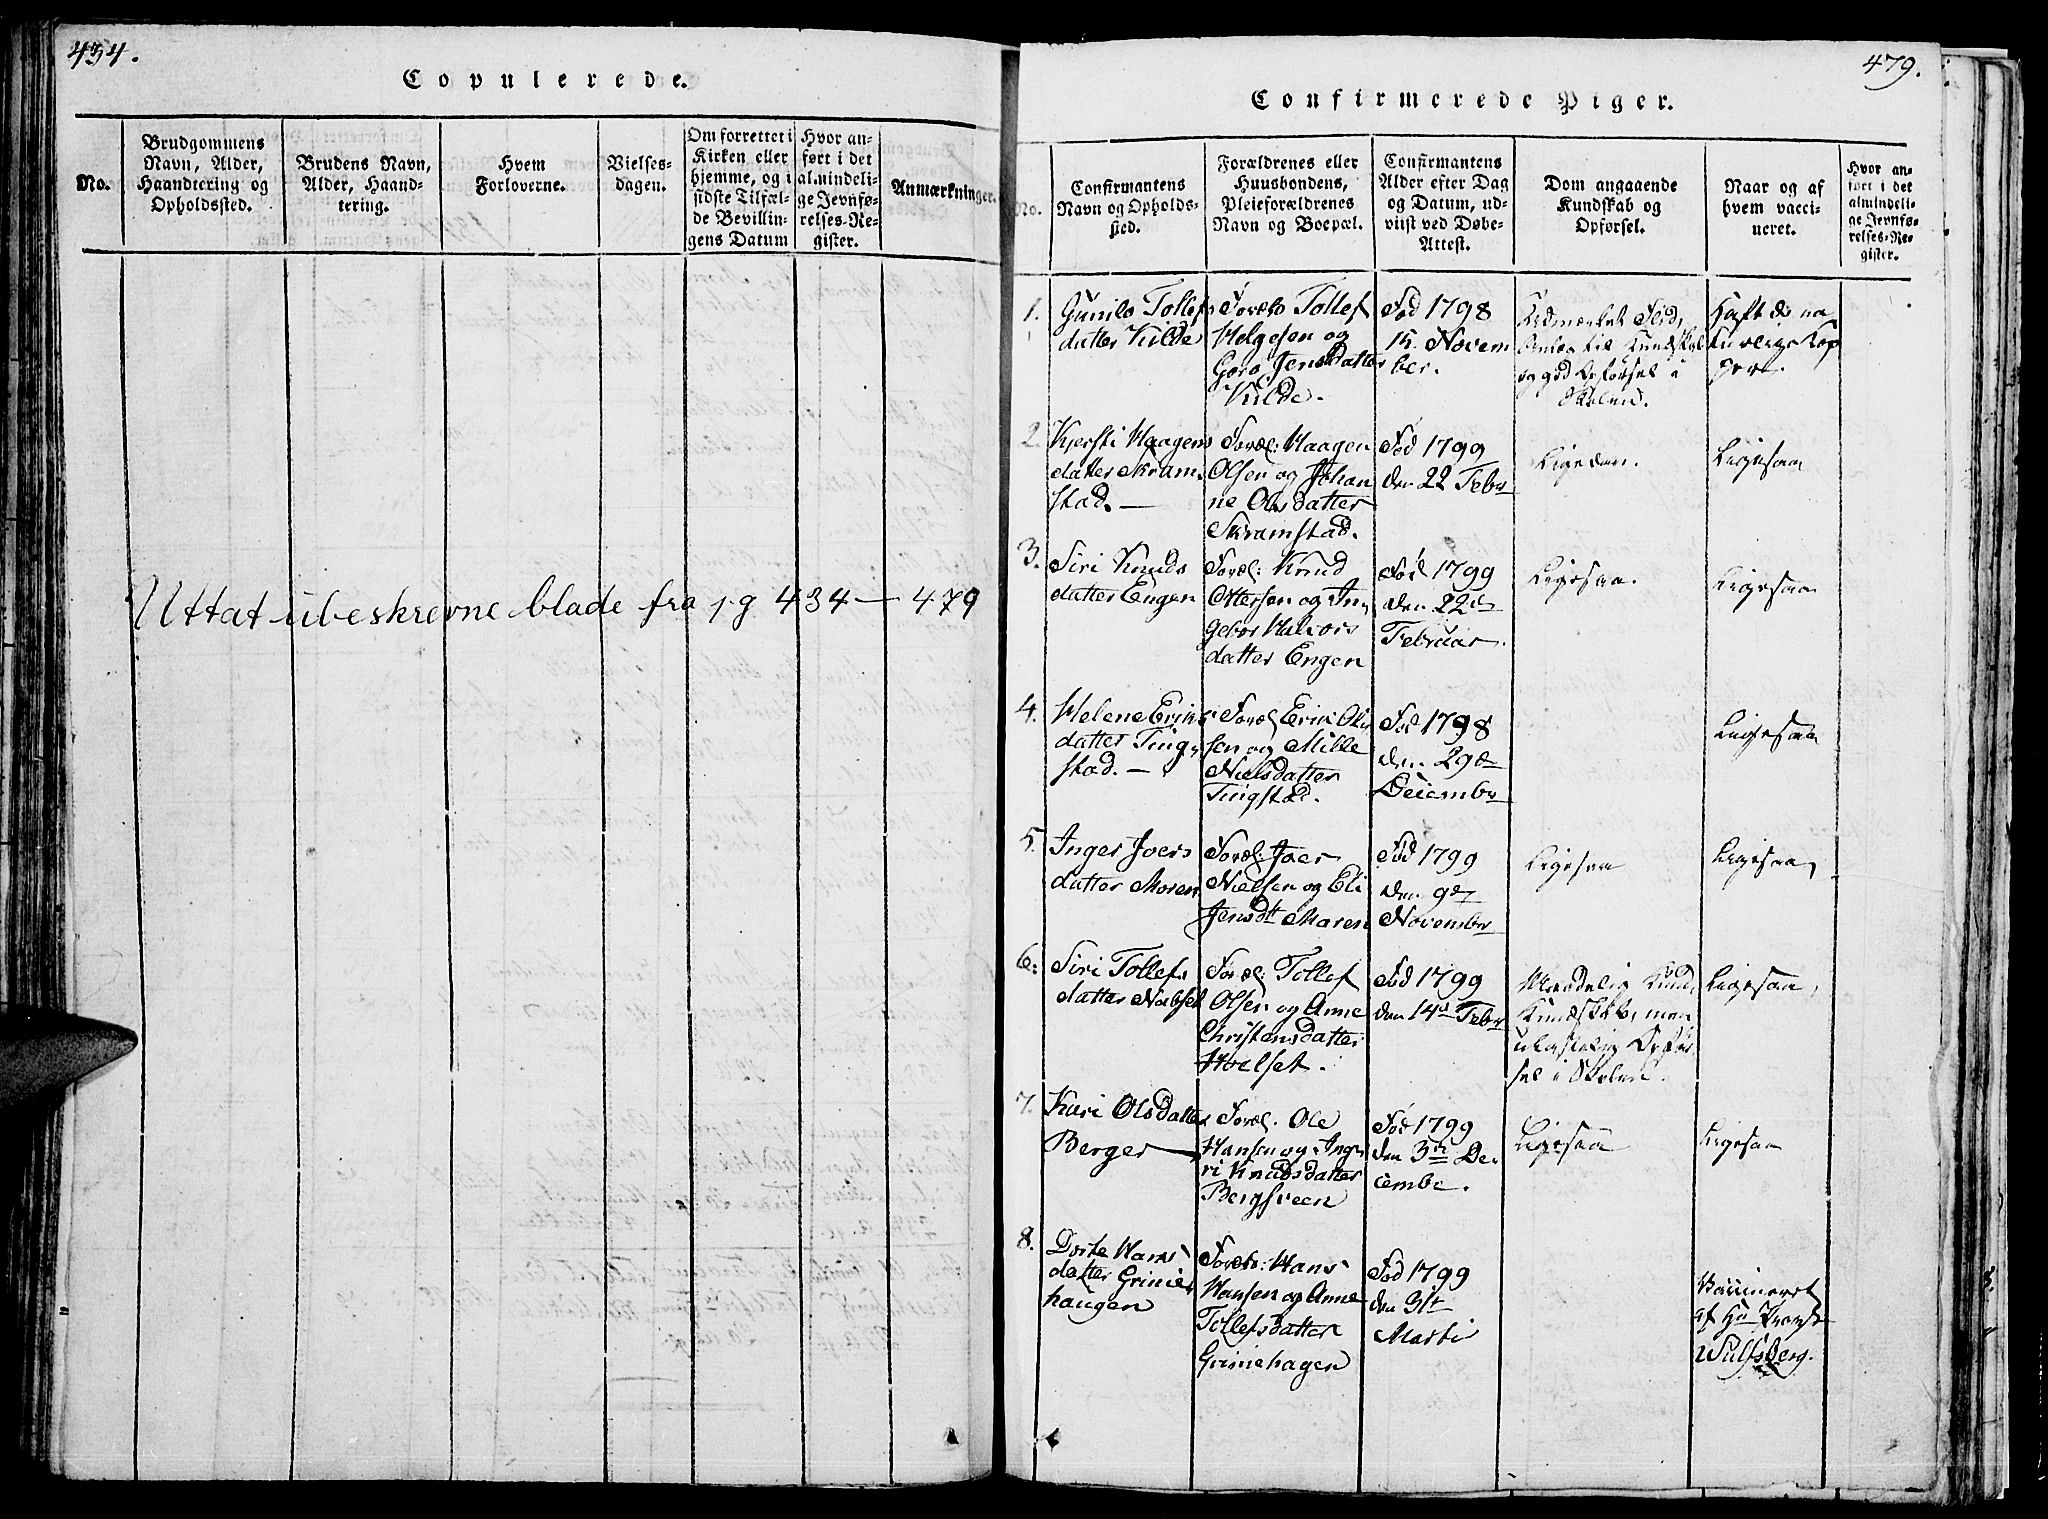 434.
Copulerede.
No.
Brudgommens
Navn, Alder,
Haandtering og
Opholdssted.
Brudens Navn,
Alder, Haand-
tering.
Hvem
Forloverne.
Vielses-
dagen.
Om forrettet i
Kirken eller
hjemme, og i
sidste Tilfæl-
de Bevillin-
gens Datum
Hvor an-
ført i det
almindeli-
ge Jevnfø-
relses-Re-
gister.
Anmærkninger.
Uttat ubeskrevne blade fra pg 434 — 479
479.
Confirmerede Piger.
No.
Confirmantens
Navn og Opholds-
sted.
Forældrenes eller
Huusbondens,
Pleieforældrenes
Navn og Boepæl.
Confirmantens
Alder efter Dag
og Datum, ud-
viist ved Døbe-
Attest.
Dom angaaende
Kundskab og
Opførsel.
Naar og af
hvem vacci-
neret.
Hvor an-
ført i det
almindeli-
ge Jevnfø-
relses-Re-
gister.
1.
Gunilo Tollefs
datter Kilde
Foræls Tollef
Helgesen og
Goro Jensdatter
Kilde.
Fød 1798
15. Novem
ber.
Flid,
til Kundskab
og god Opførsel i
Skolen.
Haft de na
turlige Kop
per.
2.
Kjersti Haagens
datter Skram
stad. —
Foræl: Haagen
Olsen og Johan
ne Olsdatter
Skramstad.
Fød 1799
den 22 Febr
Ligedan.
Ligesaa
3.
Siri Knuds
datter Engen
Foræl: Knud
Ottersen og In
gebor Halvors
datter Engen
Fød 1799
den 22de
Februar.
Ligesaa.
Ligesaa
4.
Helene Eriks
datter Ting
stad. —
Foræl Erik Ol
sen og Mille
Nielsdatter
Tingstad.
Fød 1798
den 29de
December
Ligesaa
5.
Inger Joers
datter Moren
Foræl: Joer
Nielsen og Eli
Jensdt Moren
Fød 1799
den 9de
November
Ligesaa
Ligesaa
6.
Siri Tollefs
datter
Foræl: Tollef
Olsen og Anne
Christensdatter
Hoelset.
Fød 1799
den 14de Febr
Maadelig
Kundskab, men
ulastelig Opfør
sel i Skolen.
Ligesaa
7.
Kari Olsdatter
Berger —
Foræl. Ole
Hansen og Inge
ri Knudsdatter
Bergsveen
Fød 1799
den 3die De
cembr.
Ligesaa
Ligesaa
8.
Dorte Hans
datter Grinie
haugen
Foræls: Hans
Hansen og Anne
Tollefsdatter
Griniehagen
Fød 1799
den 31t
Marti
Vaccineret
af Hr Provst
Wulfsberg.